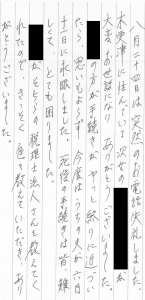 八月二十四日は突然のお電話失礼しました。
木更津に住んでいる次女の　が
大変お世話になりありがとうございました。
の方が手続きがやっと終りに近づい
たら、思いもよらず今度はうちの夫が六月
十一日に永眠しました。死後の手続きは皆難
しくて、とても困りました。
がそちらの税理士法人さんを教えてく
れたので、さっそく色々教えていただき、あり
がとうございました。